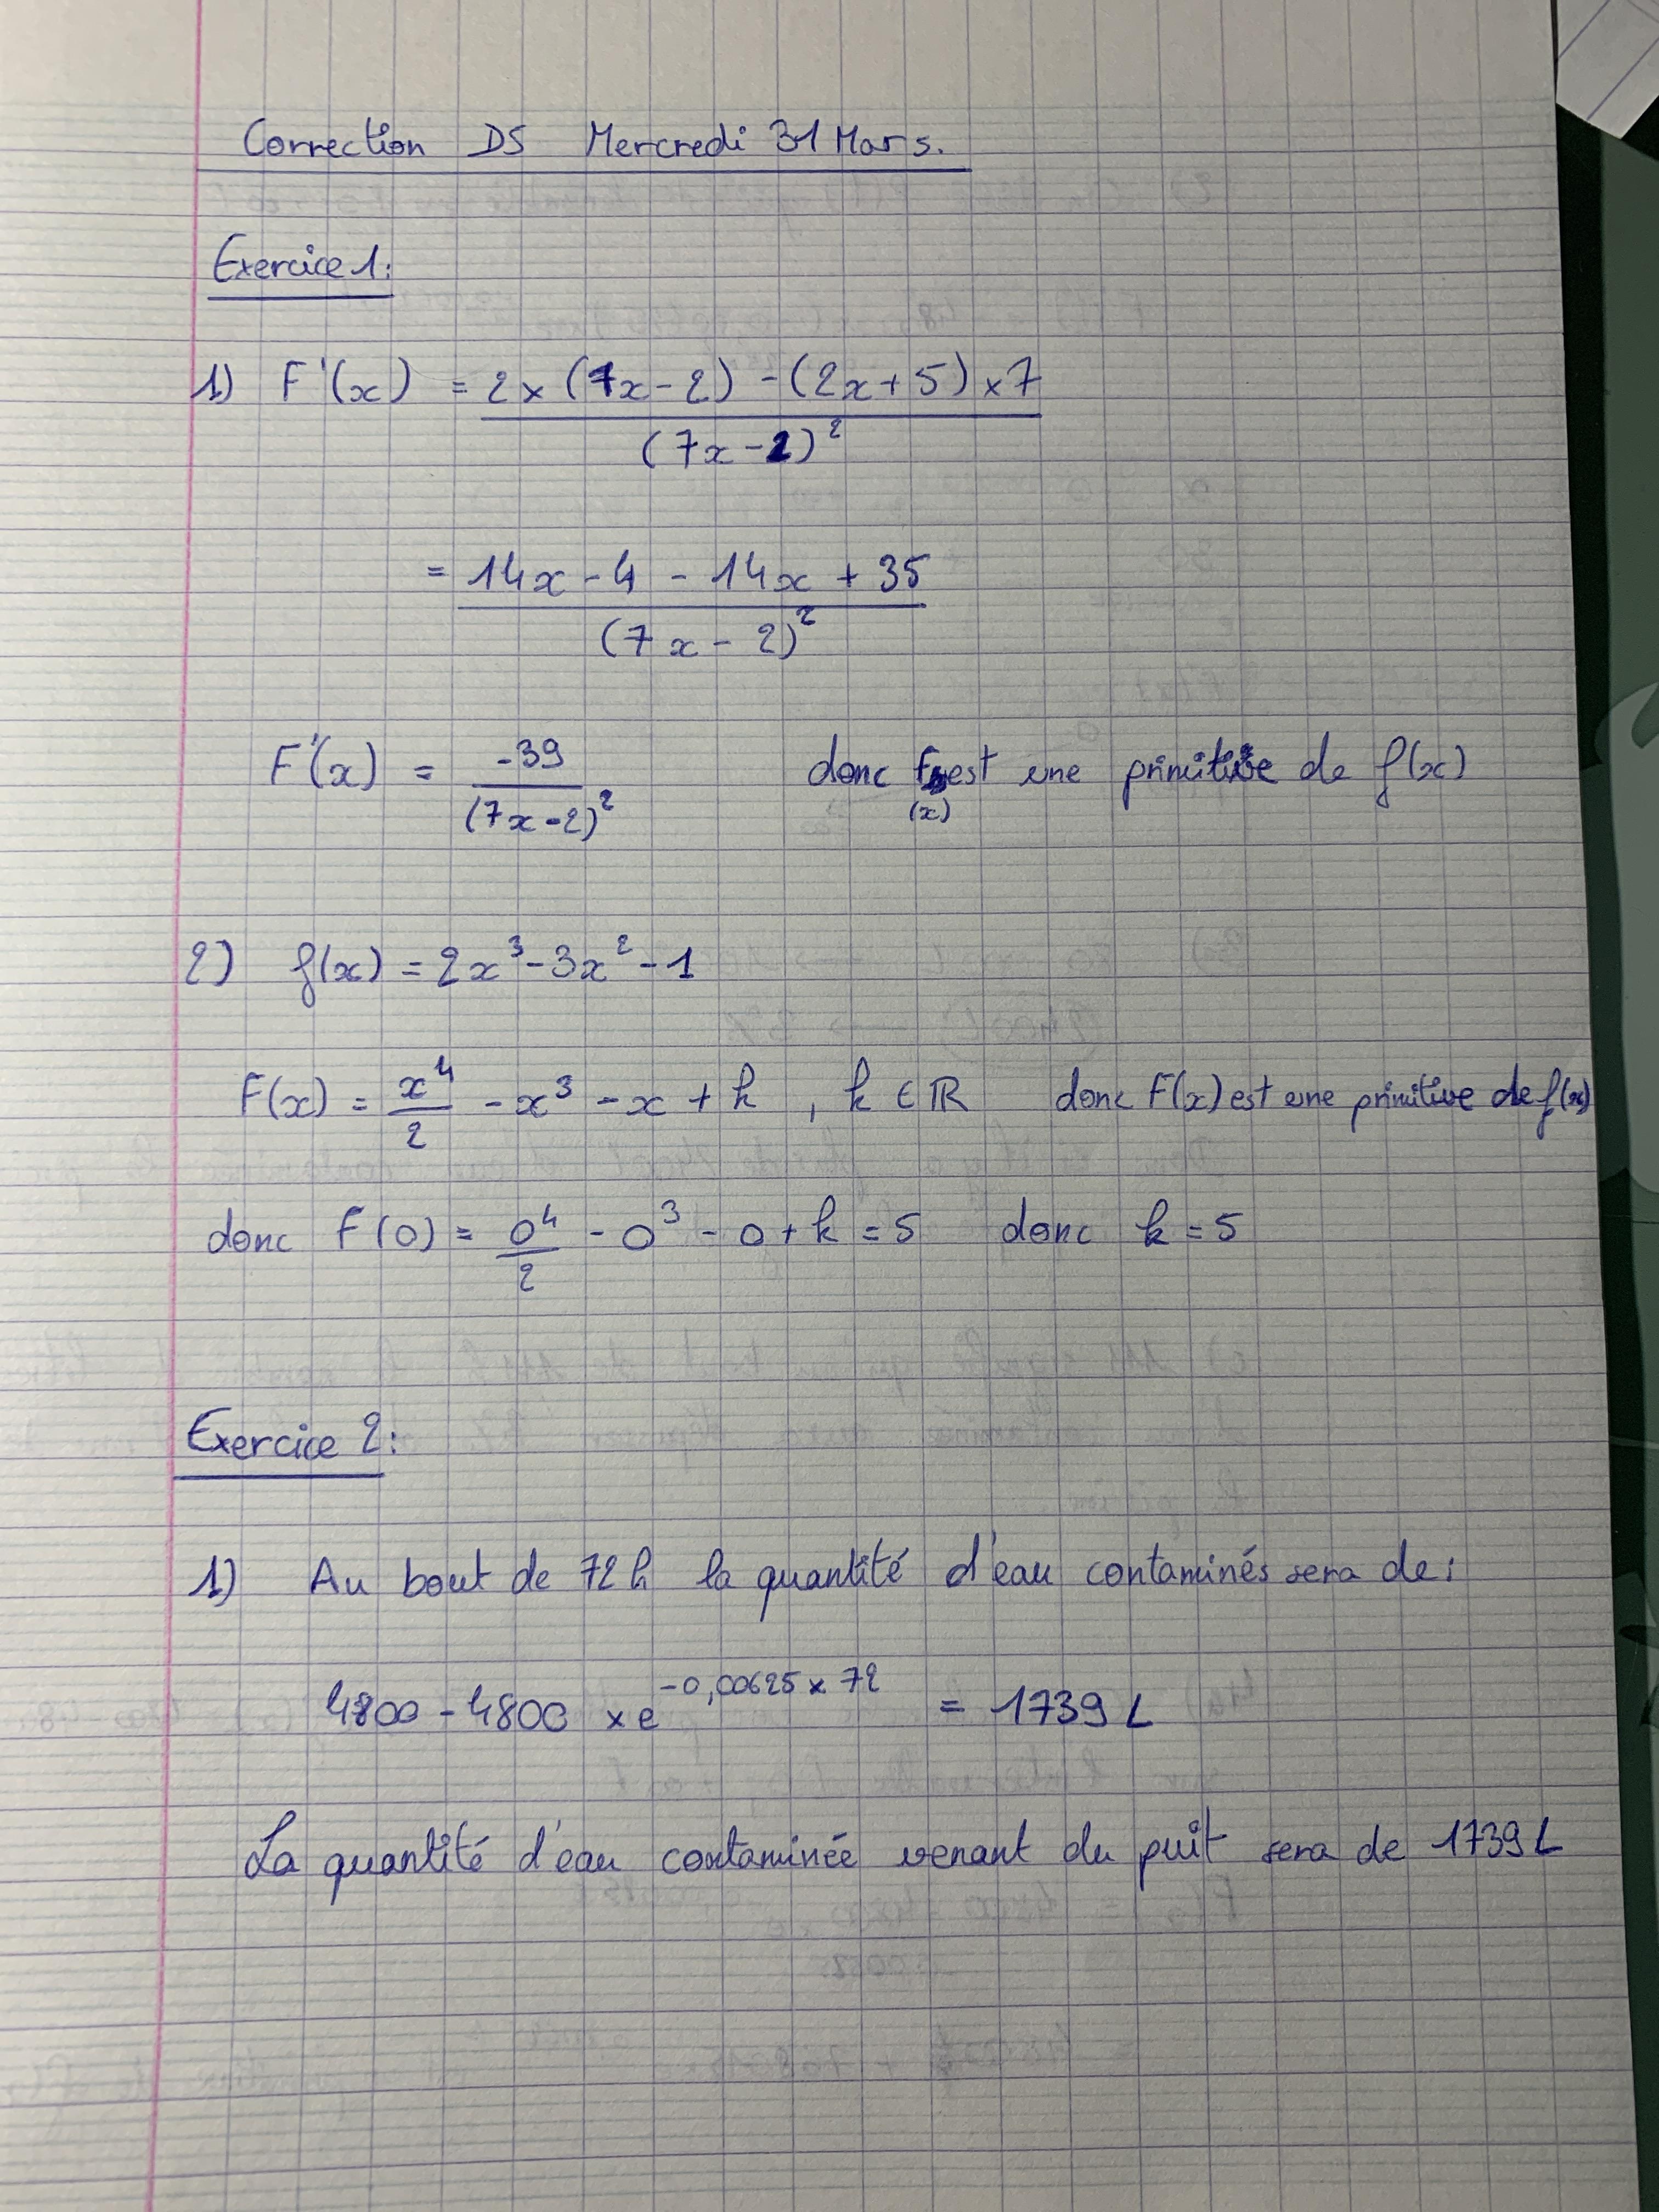 Correction DS Mercredi 31 Mars.
Exercice 1:
1) F'(x) = 2 x (7x - 2) - (2x + 5) x 7
(7x - 2)²
= 14x - 4 - 14x + 35
(7x - 2)²
F'(x) = -39 / (7x - 2)² donc F(x) est une primitive de f(x)
2) f(x) = 2x³ - 3x² - 1
F(x) = x⁴/2 - x³ - x + k , k ∈ ℝ donc F(x) est une primitive de f(x)
donc F(0) = 0⁴/2 - 0³ - 0 + k = 5 donc k = 5
Exercice 2:
1) Au bout de 72h la quantité d'eau contaminés sera de :
4800 - 4800 x e^(-0,00625 x 72) = 1739 L
La quantité d'eau contaminée venant du puit sera de 1739 L